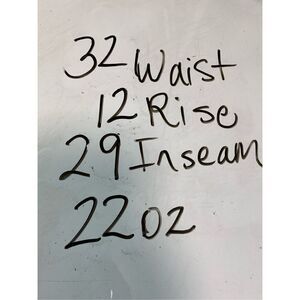 32 Waist
12 Rise
29 Inseam
22 oz